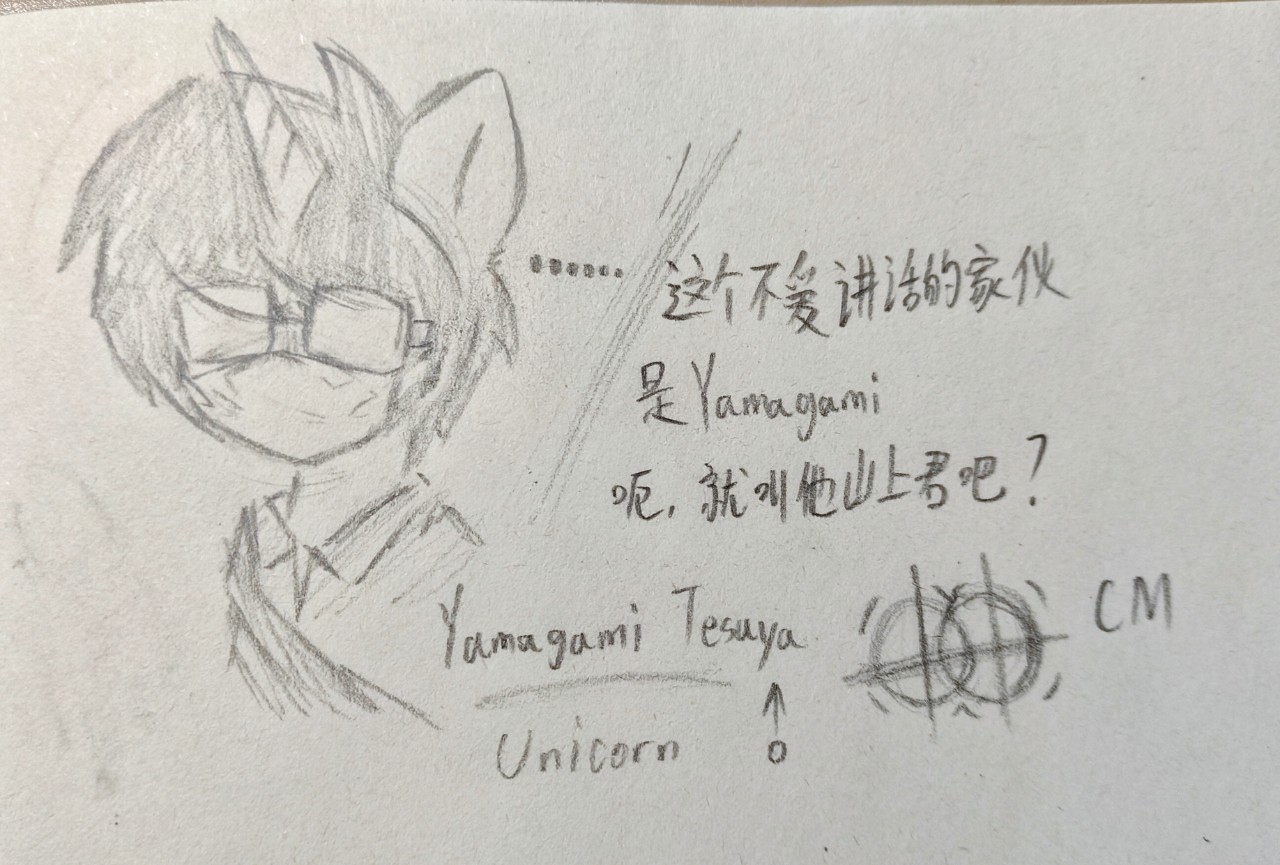 ……
这个不爱讲话的家伙
是Yamagami
呃,就叫他山上君吧?
Yamagami Tesuya
CM
Unicorn